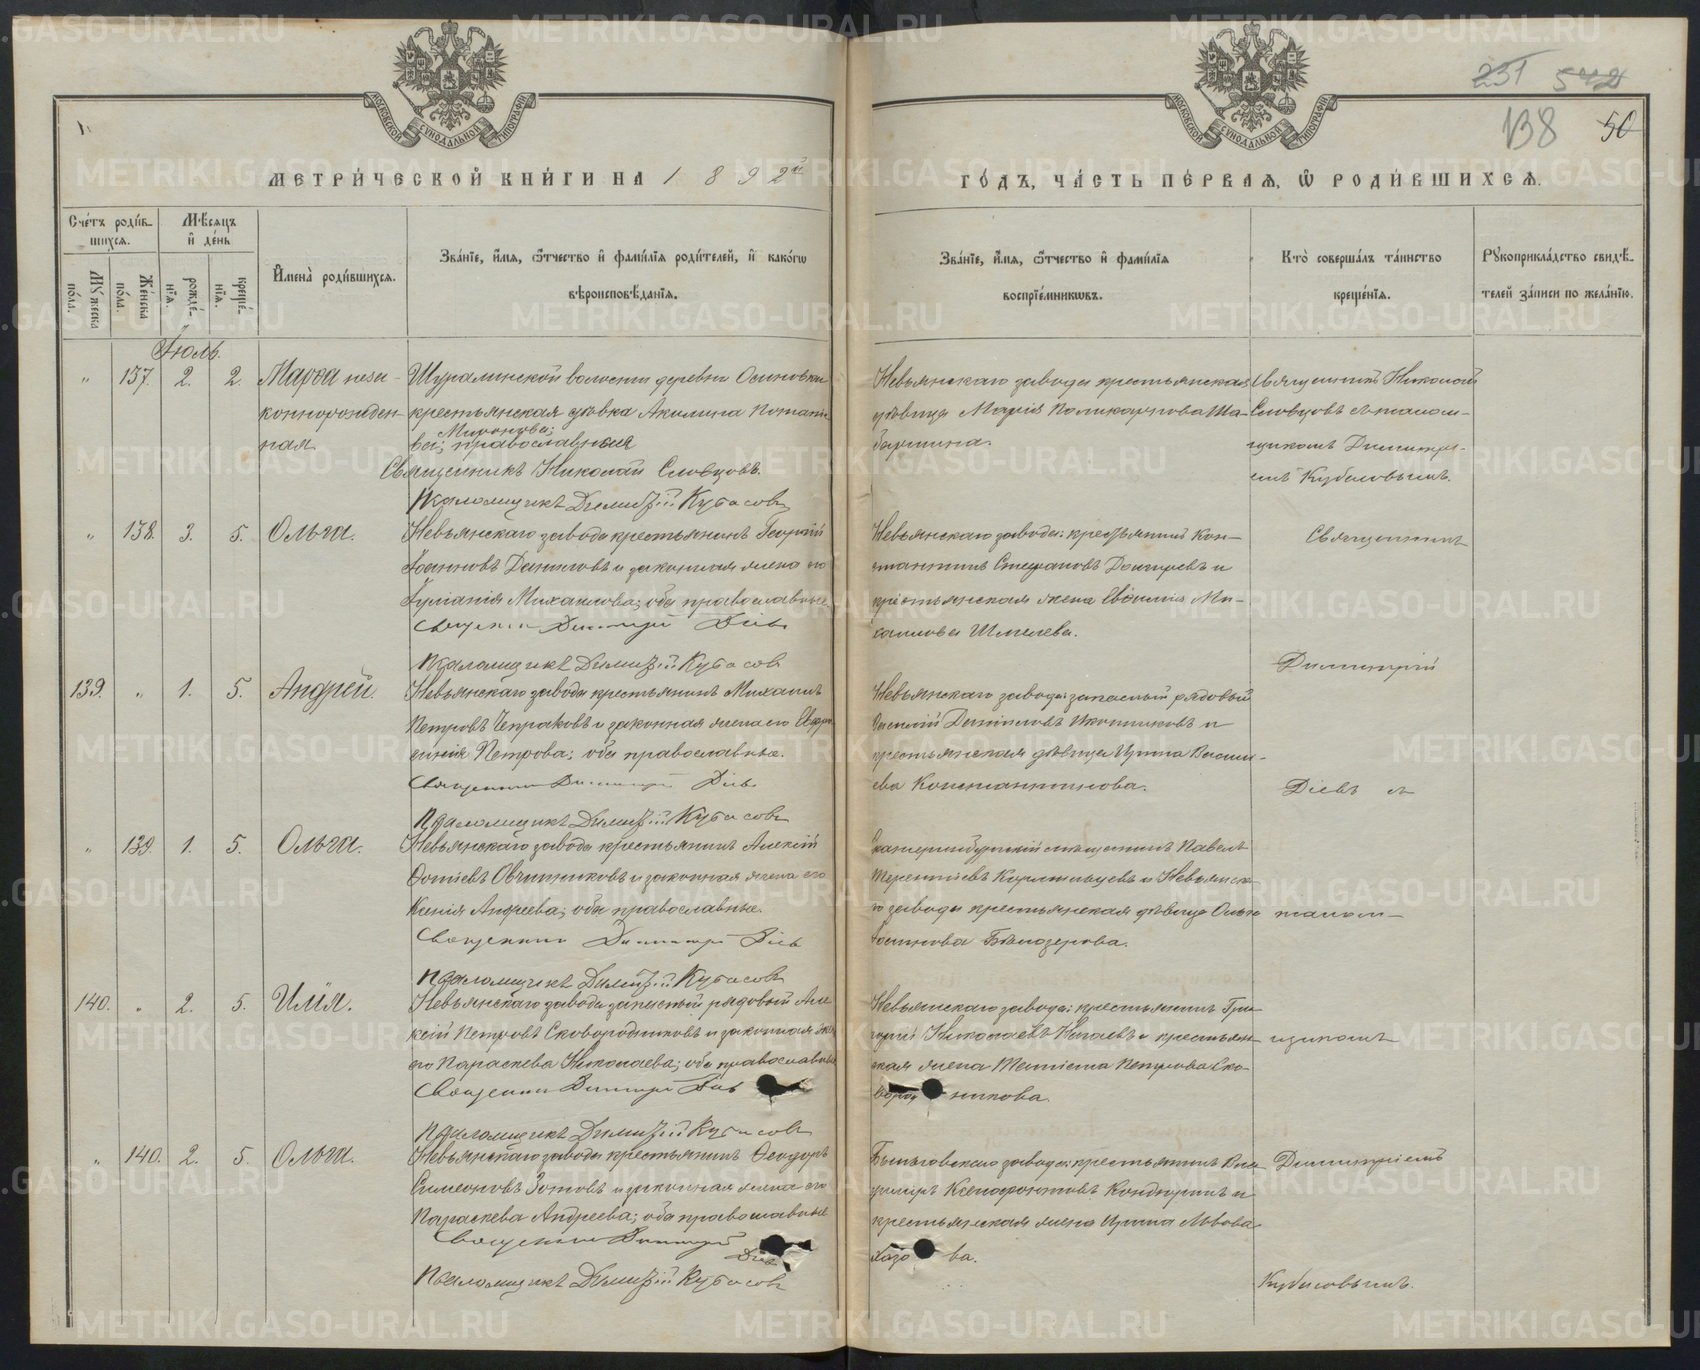 231 542
138 50
МЕТРИ́ЧЕСКОЙ КНИ́ГИ НА 1892й
ГО́ДЪ, ЧА́СТЬ ПЕ́РВАѦ, Ѡ҆ РОДИ́ВШИХСѦ.
Сче́тъ роди́в-
шихсѧ.
Мѣ́сѧцъ
и҆ де́нь
Мꙋ́жеска
по́ла.
Же́нска
по́ла.
рожде́-
нїѧ.
креще́-
нїѧ.
И҆мена̀ роди́вшихсѧ.
Зва́нїе, и҆́мѧ, ѻ҆́тчество и҆ фами́лїѧ роди́телей, и҆ како́гѡ
вѣроисповѣ́данїѧ.
Зва́нїе, и҆́мѧ, ѻ҆́тчество и҆ фами́лїѧ
воспрїе́мникѡвъ.
Кто̀ соверша́лъ та́инство
креще́нїѧ.
Рꙋкоприкла́дство свидѣ́-
телей за́писи по жела́нїю.
Іюль.
" 137. 2. 2. Марѳа неза-
коннорожден-
ная
Шуралинской волости деревни Осиновки
крестьянская дѣвка Акилина Потапо-
Миронова;
ва; православная
Священникъ Николай Словцовъ.
Псаломщикъ Димитрій Кубасовъ
Невьянскаго завода крестьянская
дѣвица Марія Поликарпова Ша-
Священникъ Николай
Словцовъ съ псалом-
щикомъ Димитрі-
емъ Кубасовымъ.
" 138. 3. 5. Ольга.
Невьянскаго завода крестьянинъ Георгій
Іоанновъ Даниловъ и законная жена его
Іуліанія Михаилова; оба православные.
Священникъ Димитрій Діевъ
Псаломщикъ Димитрій Кубасовъ
Невьянскаго завода: крестьянинъ Кон-
стантинъ Стефановъ и
крестьянская жена Евѳимія Ми-
хаилова Шмелева.
Священникъ
Димитрій
139. " 1. 5. Андрей.
Невьянскаго завода крестьянинъ Михаилъ
Петровъ Чепраковъ и законная жена его Евфро-
синія Петрова; оба православные.
Священникъ Димитрій Діевъ
Псаломщикъ Димитрій Кубасовъ
Невьянскаго завода: запасный рядовый
Василій Даниловъ Иконниковъ и
крестьянская дѣвица Ирина Василь-
ева Константинова.
Діевъ съ
" 139. 1. 5. Ольга.
Невьянскаго завода крестьянинъ Алексій
Фотіевъ Овчинниковъ и законная жена его
Ксенія Андреева; оба православные.
Священникъ Димитрій Діевъ
Псаломщикъ Димитрій Кубасовъ
Екатеринбургскій мѣщанинъ Павелъ
Терентіевъ и Невьянска-
го завода крестьянская дѣвица Ольга
Бѣлозерова.
псалом-
140. " 2. 5. Илія.
Невьянскаго завода запасный рядовый Але-
ксій Петровъ Сковородниковъ и законная жена
его Параскева Николаева; оба православные
Священникъ Димитрій Діевъ
Псаломщикъ Димитрій Кубасовъ
Невьянскаго завода: крестьянинъ Гри-
горій Николаевъ и крестьян-
ская жена Петрова Ско-
вород никова.
щикомъ
" 140. 2. 5. Ольга.
Невьянскаго завода крестьянинъ Ѳеодоръ
Симеоновъ Зотовъ и законная жена его
Параскева Андреева; оба православные
Священникъ Димитрій
Діевъ
Псаломщикъ Димитрій Кубасовъ
Быньговскаго завода: крестьянинъ Вла-
диміръ Ксенофонтовъ и
крестьянская жена Ирина Львова
ва.
Димитріемъ
Кубасовымъ.
METRIKI.GASO-URAL.RU